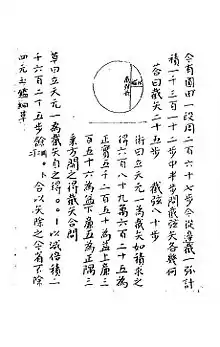 今有圓田一段周二百六十七步令從邊截一弧計
積一千三百一十二步中半步問截弦矢各幾何
答曰截矢二十五步 截弦八十步
術曰立天元一為截矢如積求之
得六百八十九萬六百二十五為
正實五千二百五十為益上廉三
百五十六為益下廉五為正隅三
乘方開之得截矢合問
草曰立天元一為截矢自之得
以減倍積二
千六百二十五步餘
合以矢除之今省不除
四元玉鑑細草